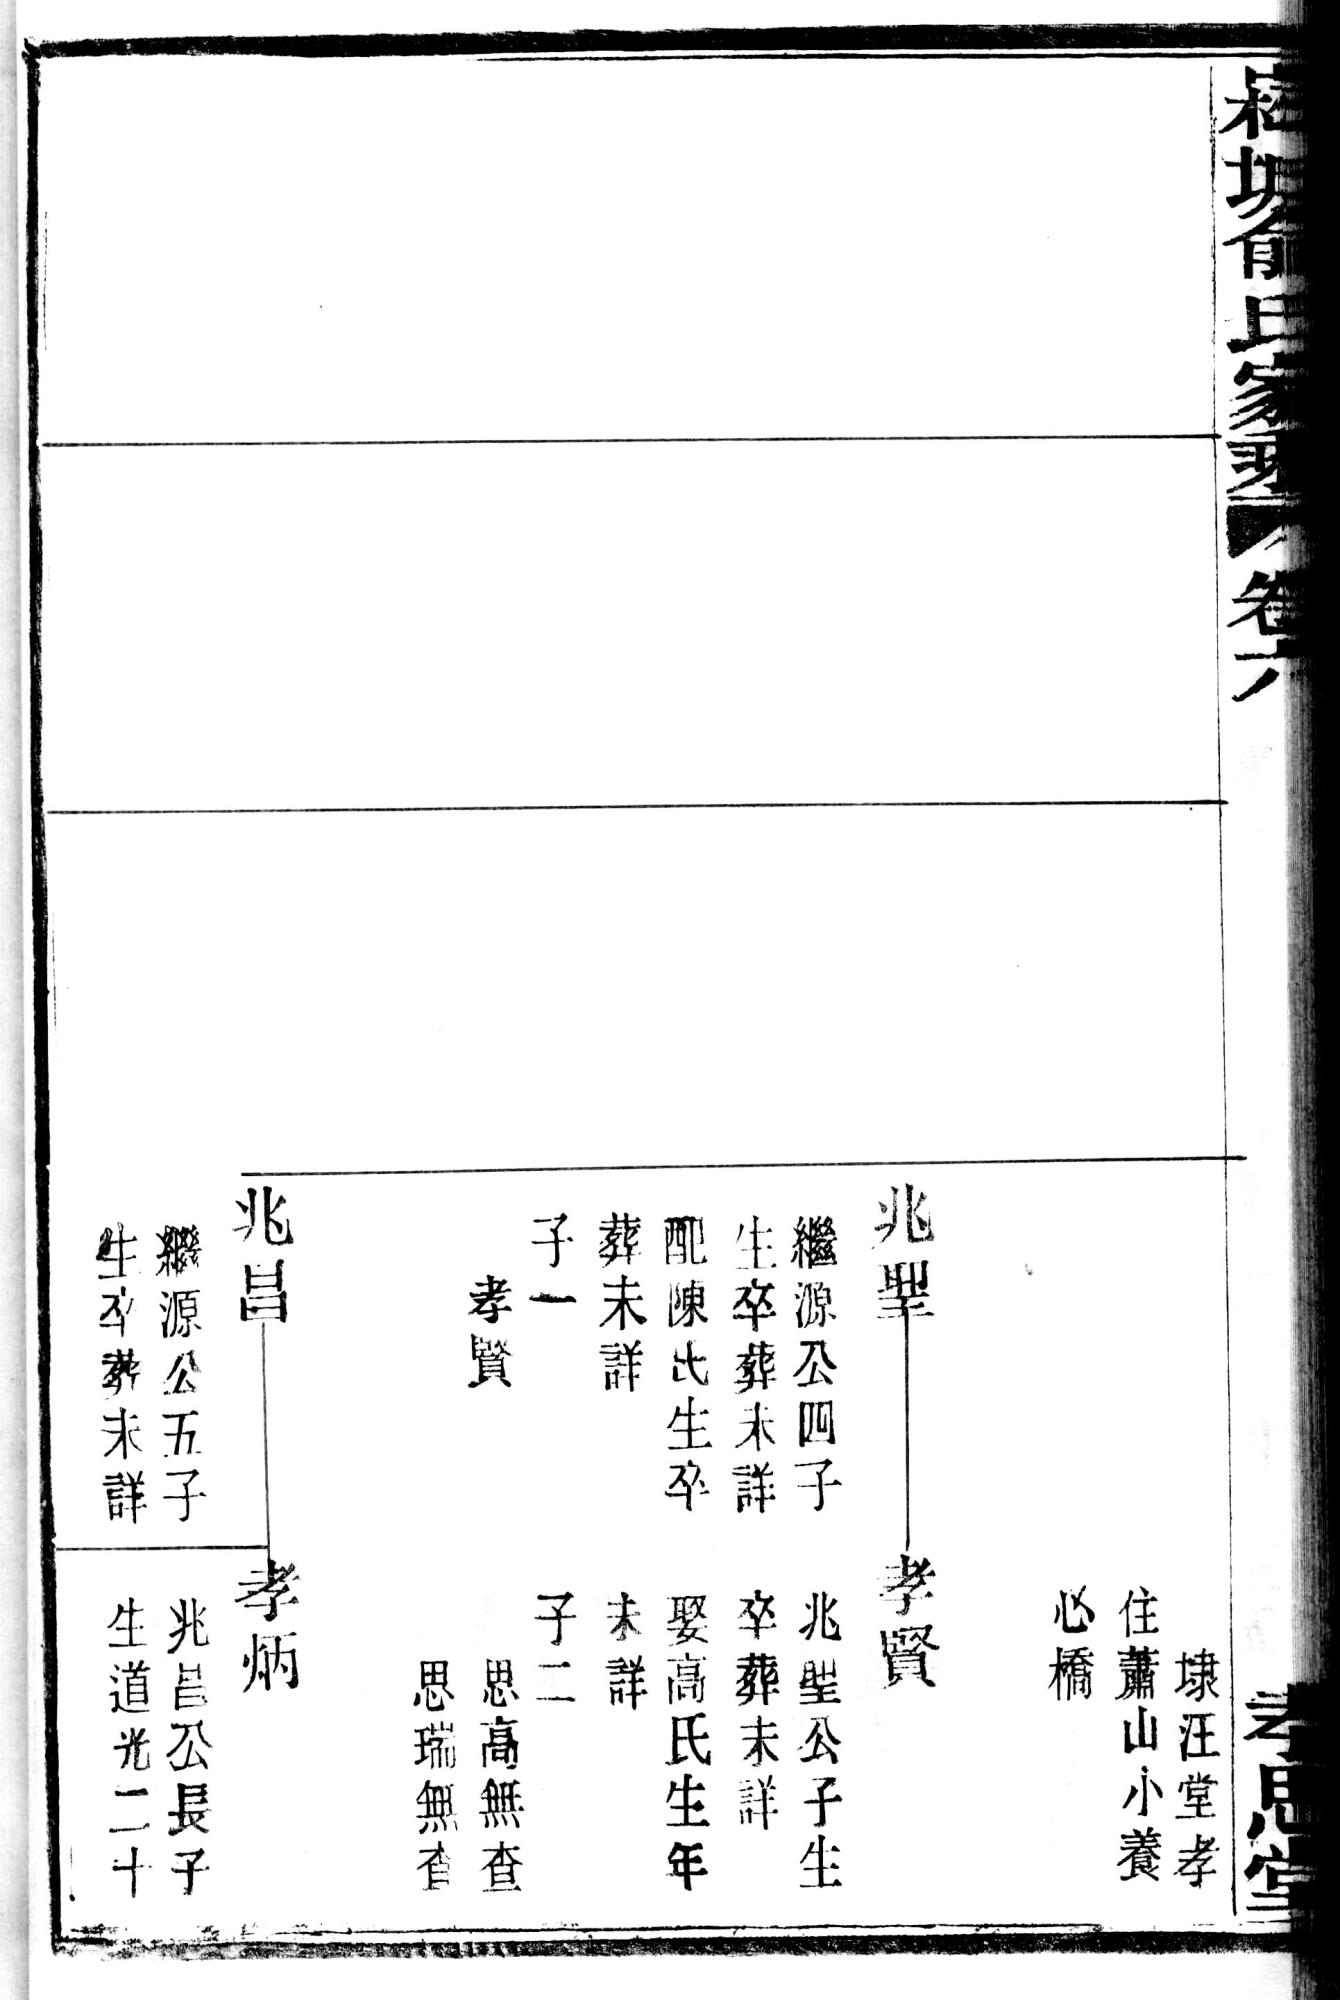 俞氏家乘
卷六
孝思堂
埭汪堂孝
住蕭山小養
心橋
兆聖
繼源公四子
生卒葬未詳
配陳氏生卒
葬未詳
子一
孝賢
孝賢
兆聖公子生
卒葬未詳
娶高氏生年
未詳
子二
思高無查
思瑞無查
兆昌
繼源公五子
生卒葬未詳
孝炳
兆昌公長子
生道光二十